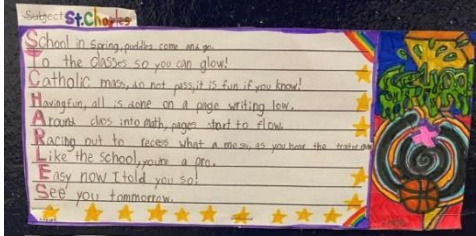 Subject St.Charles
School in spring, puddles come and go.
To the classes so you can glow!
Catholic mass, do not pass, it is fun if you know!
Having fun, all is done on a page writing low.
Around claps into math, pages start to flow.
Racing out to recess what a mess, as you hear the
Like the school, you're a pro.
Easy now I told you so!
See you tommorrow.